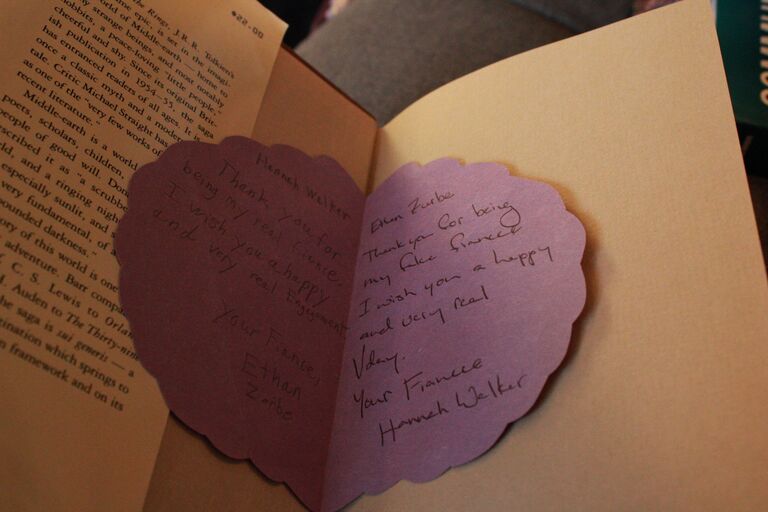 *22-00
Rings, J.R.R. Tolkien's
epic, is set in the imagi-
world of Middle-earth — home to
strange beings, and most notably
hobbits, a peace-loving "little people,"
cheerful and shy. Since its original Brit-
ish publication in 1954–55, the saga
has entranced readers of all ages. It is
once a classic myth and a modern
tale. Critic Michael Straight has
as one of the "very few works of
recent literature."
Middle-earth is a world
poets, scholars, children,
people of good will. Don
scribed it as "a scrubbe
ld, and a ringing nigh
especially sunlit, and s
very fundamental, of a
pounded darkness."
ory of this world is one
adventure. Barr compa
C. S. Lewis to Orlan
Auden to The Thirty-nine
he saga is sui generis — a
gination which springs to
n framework and on its
Hannah Walker
Thank you for
being my real fiance.
I wish you a happy
and very real Engagement
Your Fiance,
Ethan
Zorbe
Ethan Zorbe
Thank you for being
my fake fiancee
I wish you a happy
and very real
Vday.
Your Fiancee
Hannah Walker
COMMU